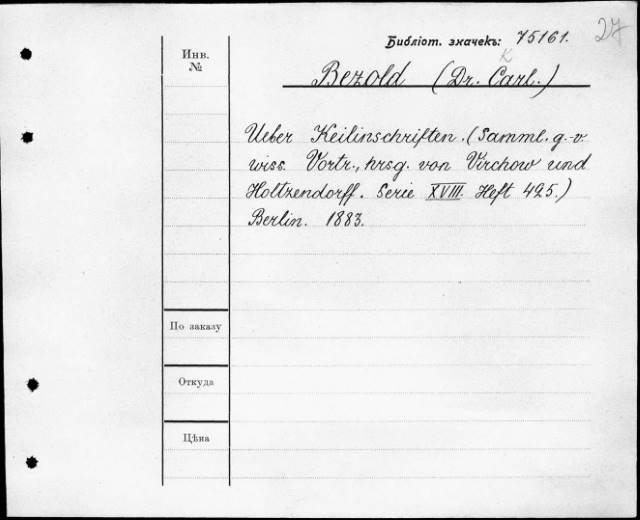 Библіот. значекъ: 75161. 27
Инв.
№
K
Bezold (Dr. Carl.)
Ueber Keilinschriften. (Samml. g.-v.
wiss. Vortr., hrsg. von Virchow und
Holtzendorff. Serie XVIII. Heft 425.)
Berlin. 1883.
По заказу
Откуда
Цѣна